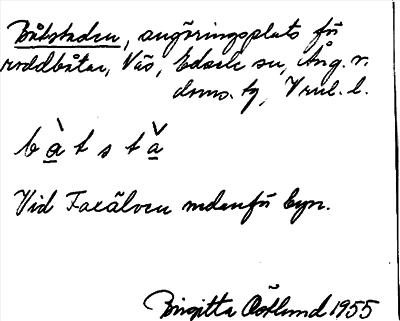 Båtstaden, angöringsplats för
roddbåtar, Väs, Edsele sn, Ång. v.
doms. tg, Vrml. l.
bàtstǎ
Vid Faxälven nedanför byn.
Birgitta Östlund 1955